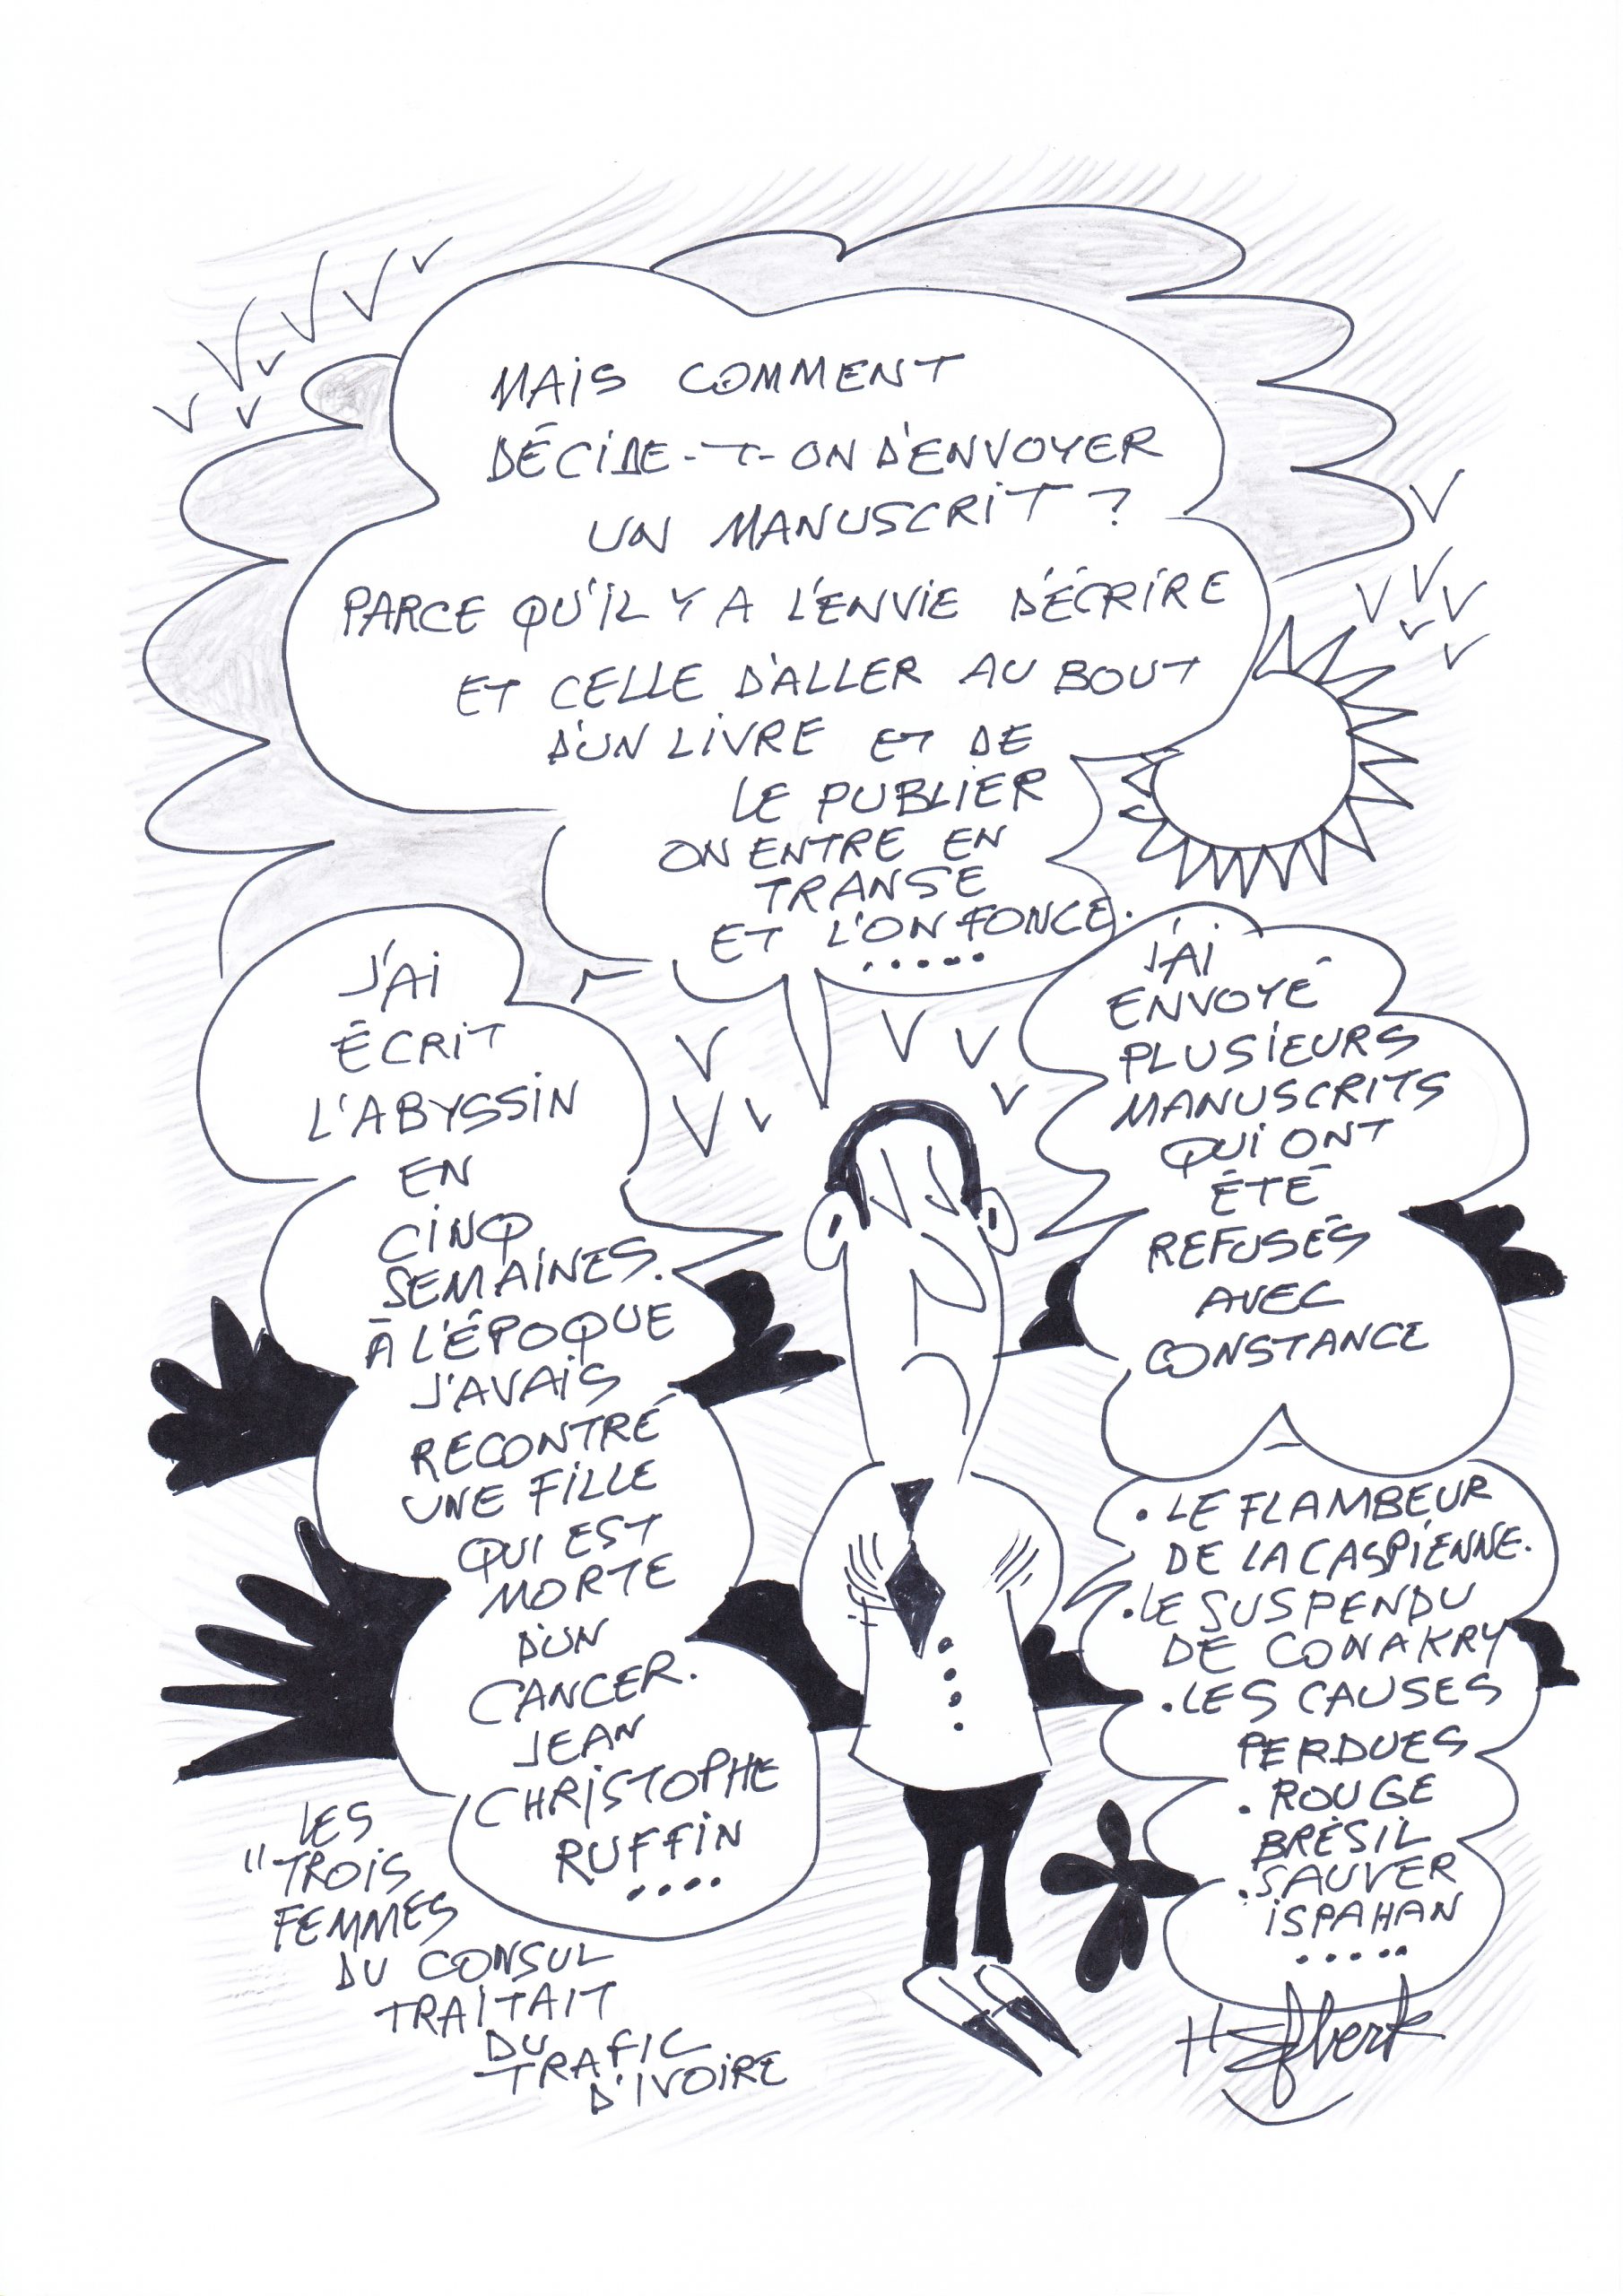 MAIS COMMENT
DÉCIDE-T-ON D'ENVOYER
UN MANUSCRIT ?
PARCE QU'IL Y A L'ENVIE D'ÉCRIRE
ET CELLE D'ALLER AU BOUT
D'UN LIVRE ET DE
LE PUBLIER
ON ENTRE EN
TRANSE
ET L'ON FONCE.
.....
J'AI
ÉCRIT
L'ABYSSIN
EN
CINQ
SEMAINES.
À L'ÉPOQUE
J'AVAIS
RECONTRÉ
UNE FILLE
QUI EST
MORTE
D'UN
CANCER.
JEAN
CHRISTOPHE
RUFFIN
....
J'AI
ENVOYÉ
PLUSIEURS
MANUSCRITS
QUI ONT
ÉTÉ
REFUSÉS
AVEC
CONSTANCE
. LE FLAMBEUR
DE LA CASPIENNE.
. LE SUSPENDU
DE CONAKRY
. LES CAUSES
PERDUES
. ROUGE
BRÉSIL
. SAUVER
ISPAHAN
.....
LES
"TROIS
FEMMES
DU CONSUL
TRAITAIT
DU
TRAFIC
D'IVOIRE